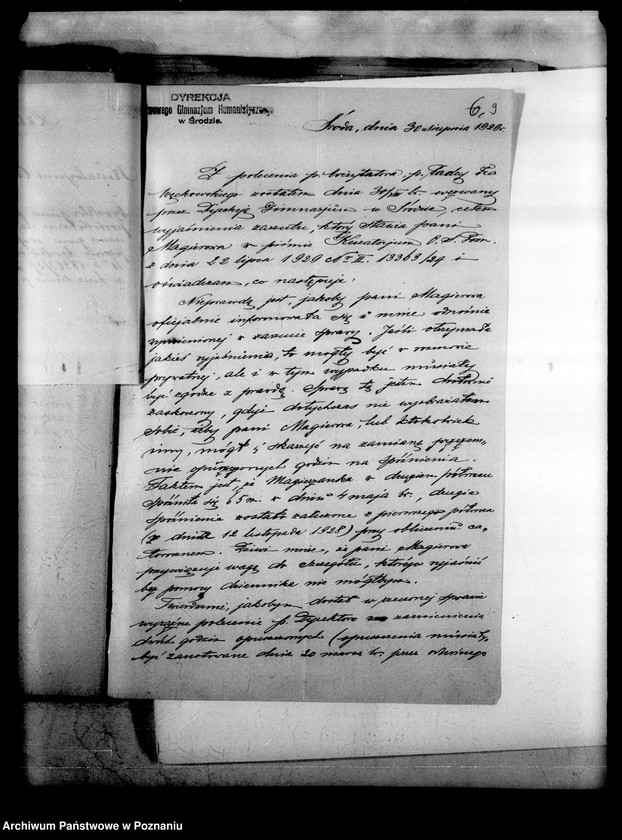 DYREKCJA
Gimnazjum Humanistycznego
w Środzie.
6, 9
Środa, dnia 30 sierpnia 1929 r.
Z polecenia p. wizytatora, p. Tadzy
zostałem dnia 30/VIII br. wezwany
przez Dyrekcję Gimnazjum w Środzie, celem
wyjaśnienia zarzutu, który stawia pani
Magierowa w piśmie Kuratorjum O. S. Pozn.
z dnia 22 lipca 1929 Nr II. 13363/29 i
oświadczam, co następuje:
Nieprawdą jest, jakoby pani Magierowa
oficjalnie informowała się u mnie odnośnie
wymienionej w zarzucie sprawy. Jeśli otrzymała
jakieś wyjaśnienia, to mogły być w rozmowie
prywatnej, ale i w tym wypadku musiały
być zgodne z prawdą. Sprawą tą jestem
zaskoczony, gdyż dotychczas nie wyobrażałem
sobie, żeby pani Magierowa, lub ktokolwiek
inny, mógł skarżyć na zamianę
nie opuszczonych godzin na spóźnienia.
Faktem jest, że Magierzanka w drugiem półroczu
spóźniła się 65 m. w dniu 4 maja br., drugie
spóźnienie zostało zaliczone z pierwszego półrocza
(z dnia 12 listopada 1928) przy obliczeniu ca-
łorocznem. Dziwi mnie, że pani Magierowa
przywiązuje wagę do szczegółu, którego wyjaśnić
bez pomocy dziennika nie mógłbym.
Twierdzenie, jakobym dostał w rzeczonej sprawie
wyraźne polecenie p. Dyrektora zamienienia
dwóch godzin opuszczonych (opuszczenia musiały
być zanotowane dnia 20 marca br. przez
Archiwum Państwowe w Poznaniu